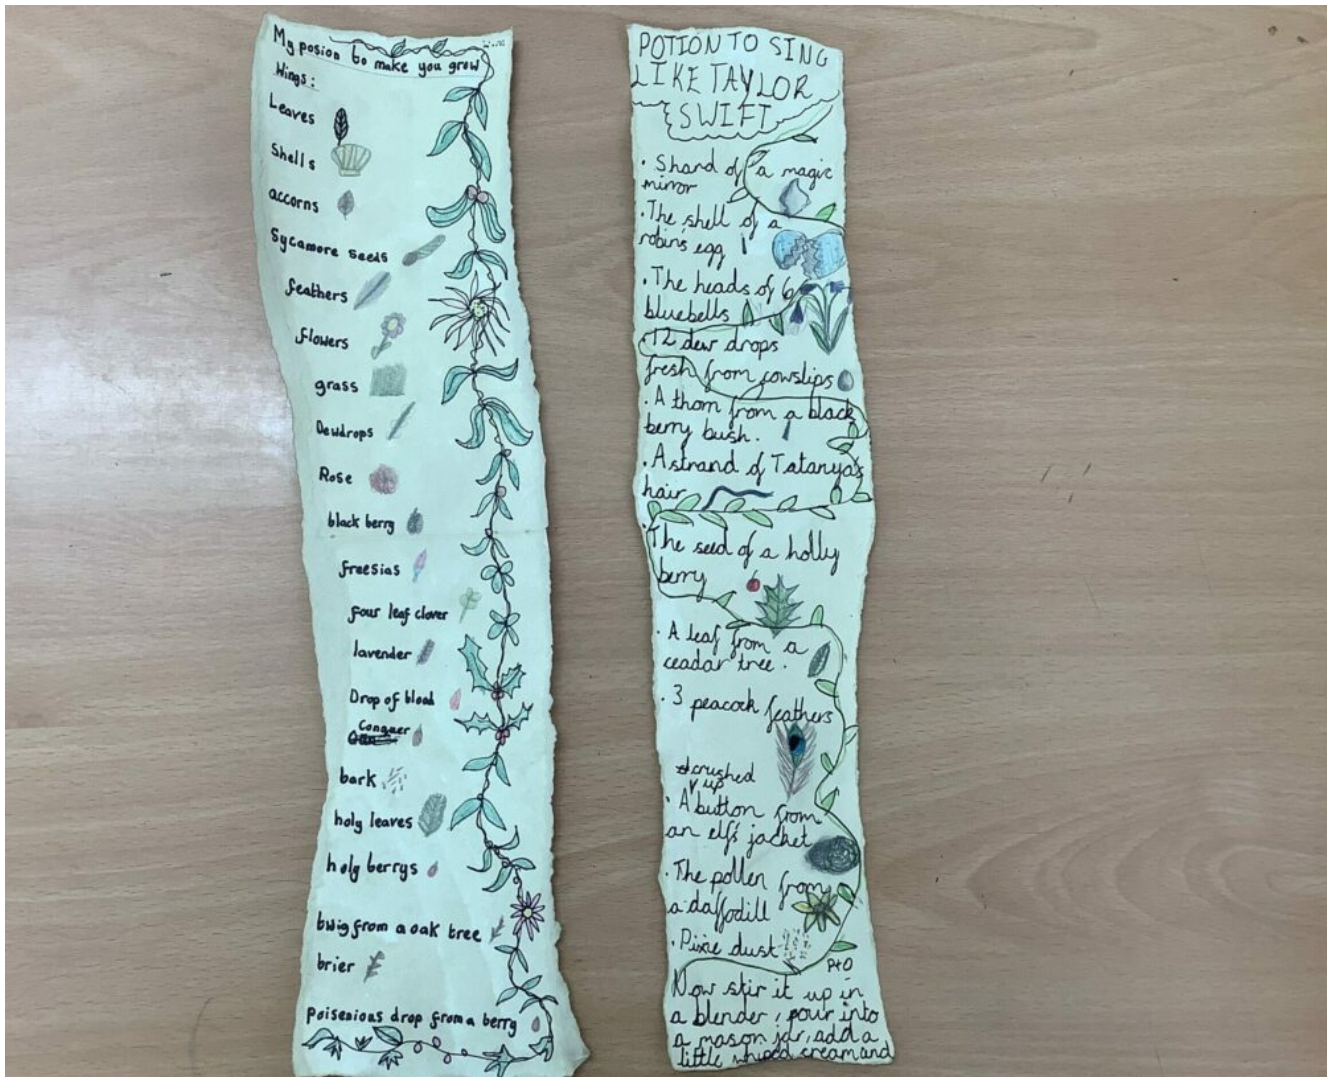 My posion to make you grow
Wings:
Leaves
Shells
accorns
Sycamore seeds
feathers
flowers
grass
Dewdrops
Rose
black berry
freesias
four leaf clover
lavender
Drop of blood
Conquer
bark
holy leaves
holy berrys
twig from a oak tree
brier
poisenious drop from a berry
POTION TO SING
LIKE TAYLOR
SWIFT
• Shard of a magic
mirror
• The shell of a
robins egg
• The heads of 6
bluebells
• 12 dew drops
fresh from cowslips
• A thorn from a black
berry bush.
• A strand of Tatanya's
hair
• The seed of a holly
berry
• A leaf from a
ceadar tree.
• 3 peacock feathers
crushed
up
• A button from
an elfs jacket
• The pollen from
a daffodill
• Pixie dust
PtO
Now stir it up in
a blender, pour into
a mason jar, add a
little whipped cream and